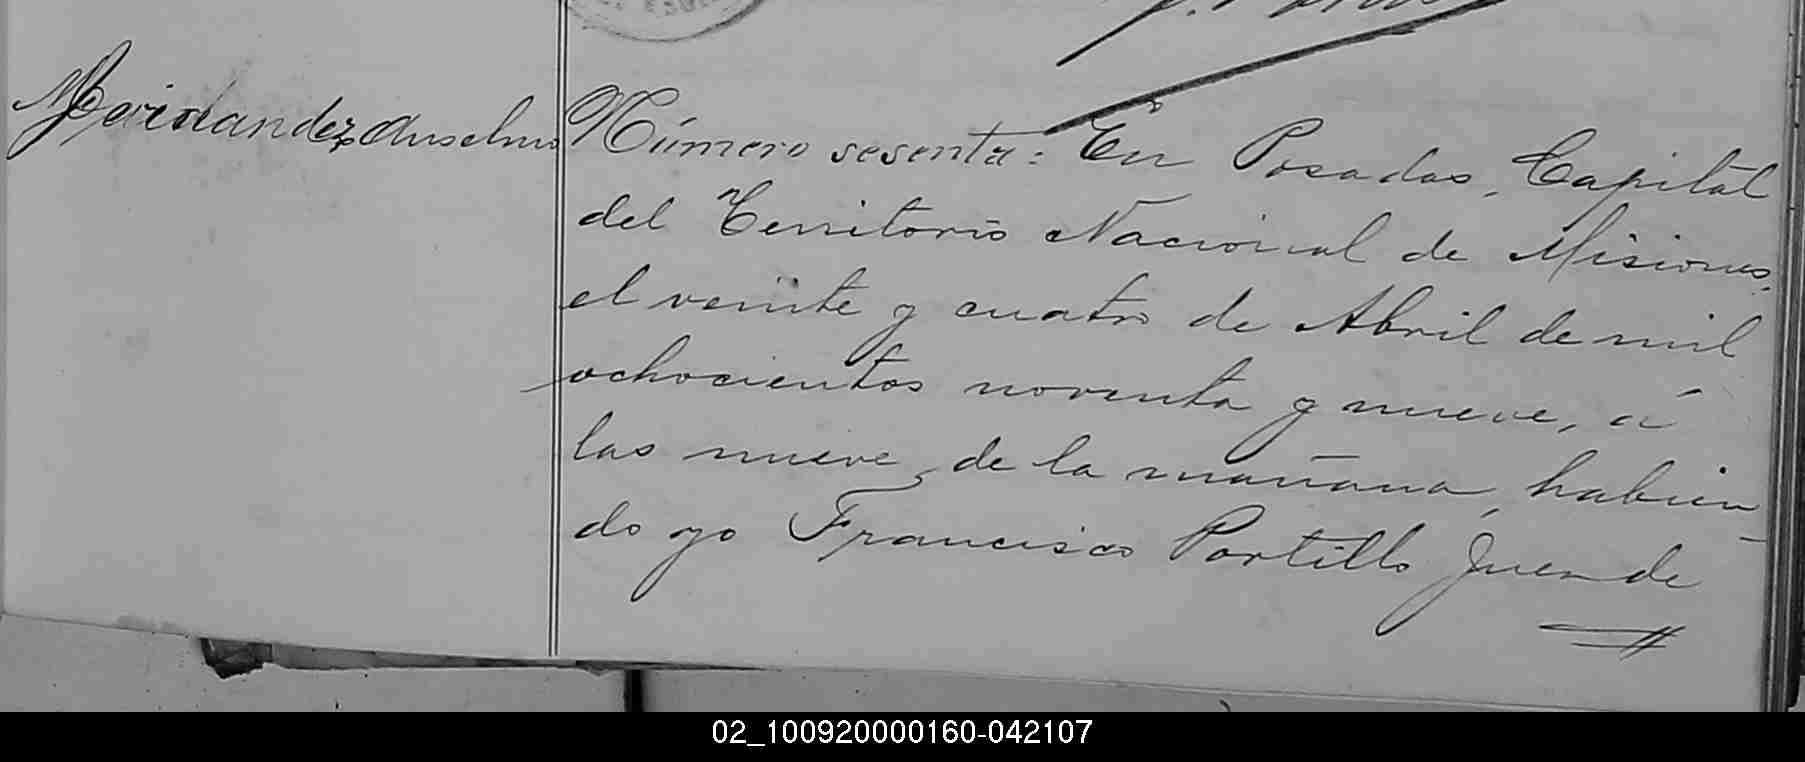 Hernandez Anselmo
Número sesenta: En Posadas, Capital
del Territorio Nacional de Misiones,
el veinte y cuatro de Abril de mil
ochocientos noventa y nueve, á
las nueve de la mañana, habien-
do yo Francisco Portillo Juez de
02_100920000160-042107